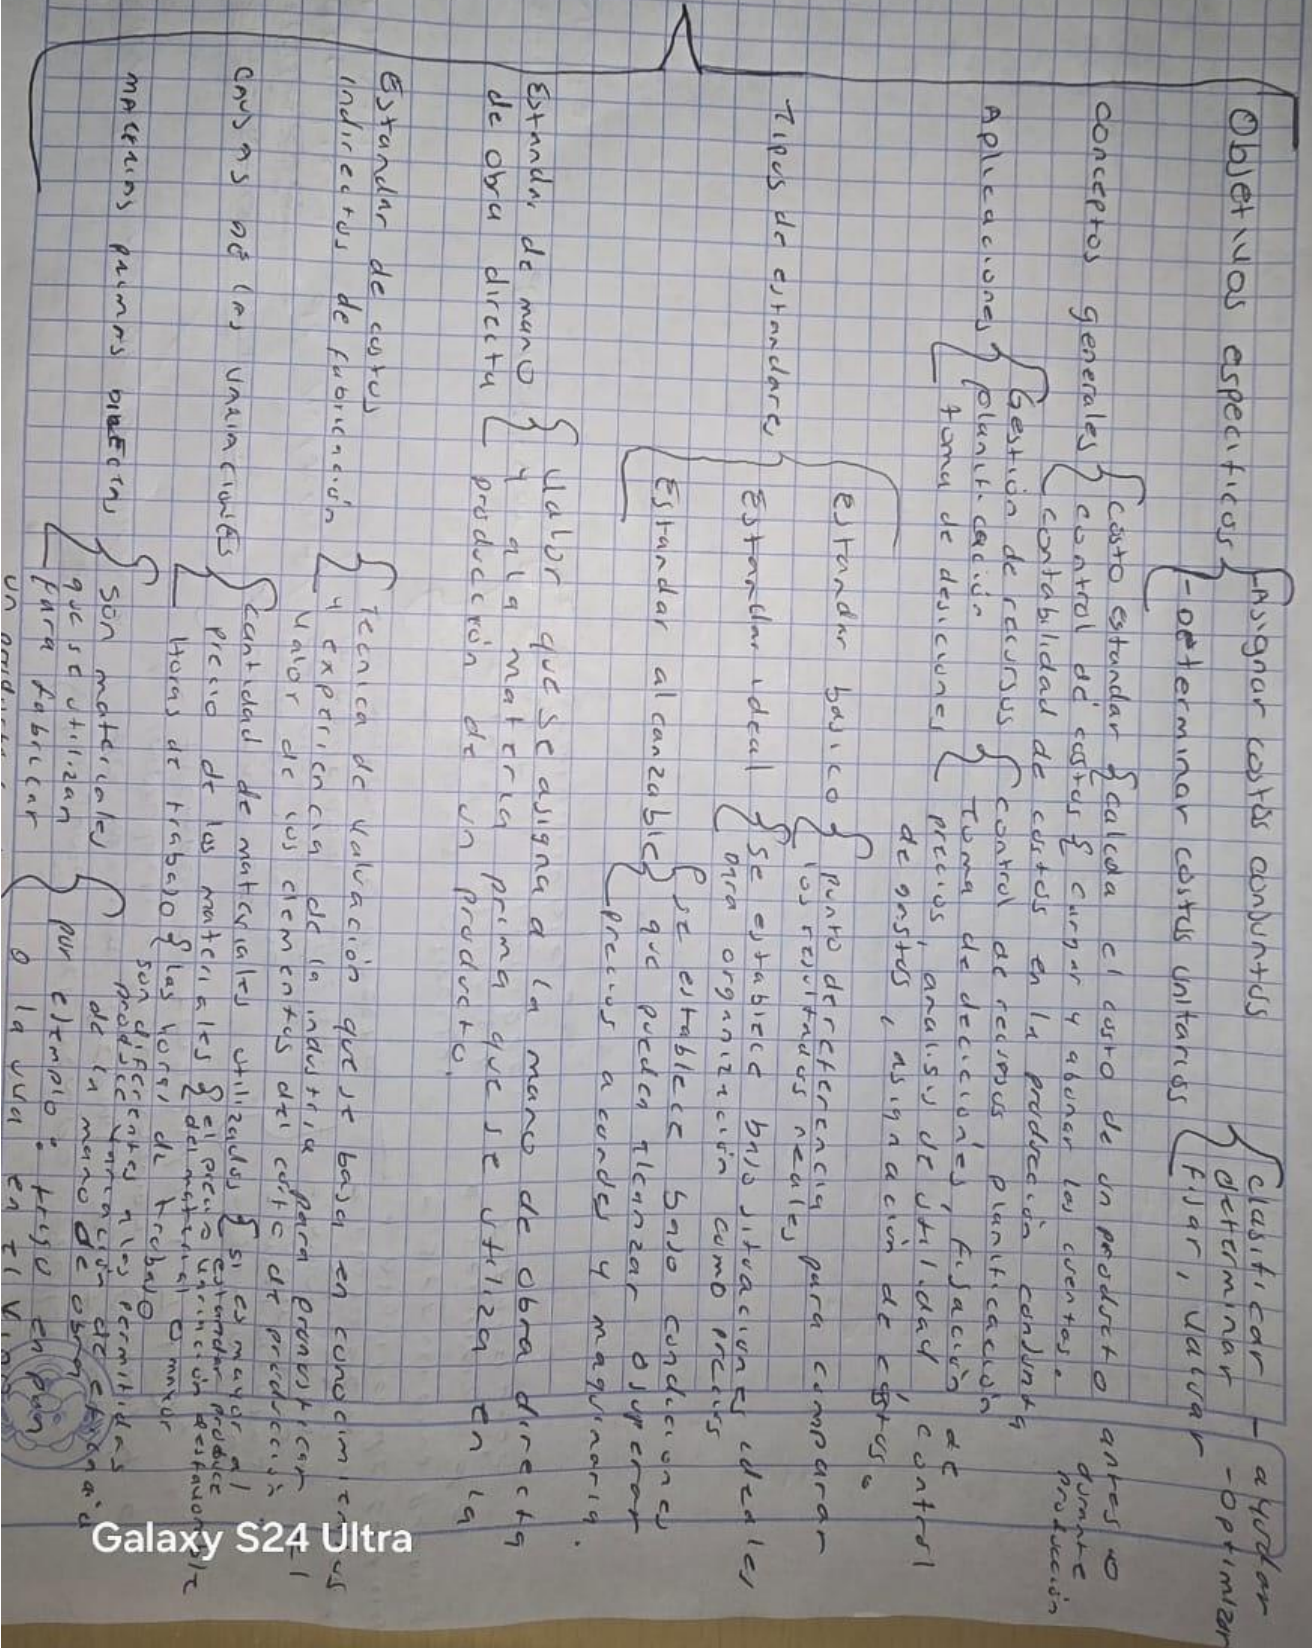 Objetivos especificos
-Asignar costos conjuntos
-Determinar costos unitarios
clasificar
determinar
fijar, valuar
- ayudar
-optimizar
conceptos generales
costo estandar
calcula el costo de un producto antes o
durante
producción
control de costos
cargar y abonar las cuentas.
contabilidad de costos en la producción conjunta
Aplicaciones
Gestión de recursos
planificación
toma de desiciones
control de recursos planificación
Toma de deciciones, fijación de
precios, analisis de utilidad control
de gastos, asignación de costos.
Tipos de estandares
Estandar basico
punto de referencia para comparar
los resultados reales
Estandar ideal
se establece bajo situaciones ideales
para organización como precios
Estandar alcanzable
se establece bajo condiciones
que pueden alcanzar o superar
precios acordes y maquinaria.
Estandar de mano
de obra directa
Valor que se asigna a la mano de obra directa
y a la materia prima que se utiliza en la
producción de un producto.
Estandar de costos
indirectos de fabricación
Tecnica de valuación que se basa en conocimientos
y experiencia de la industria para pronosticar el
valor de los elementos del costo de producción
causas de las variaciones
Cantidad de materiales utilizados
si es mayor al
estandar produce
variación desfavorable
precio de los materiales
el precio
del material o mayor
Horas de trabajo
las horas de trabajo
son diferentes a las permitidas
produce variación de
de la mano de obra
materias primas directas
son materiales
que se utilizan
para fabricar
un
por ejemplo: trigo en pan
o la uva en el
Galaxy S24 Ultra